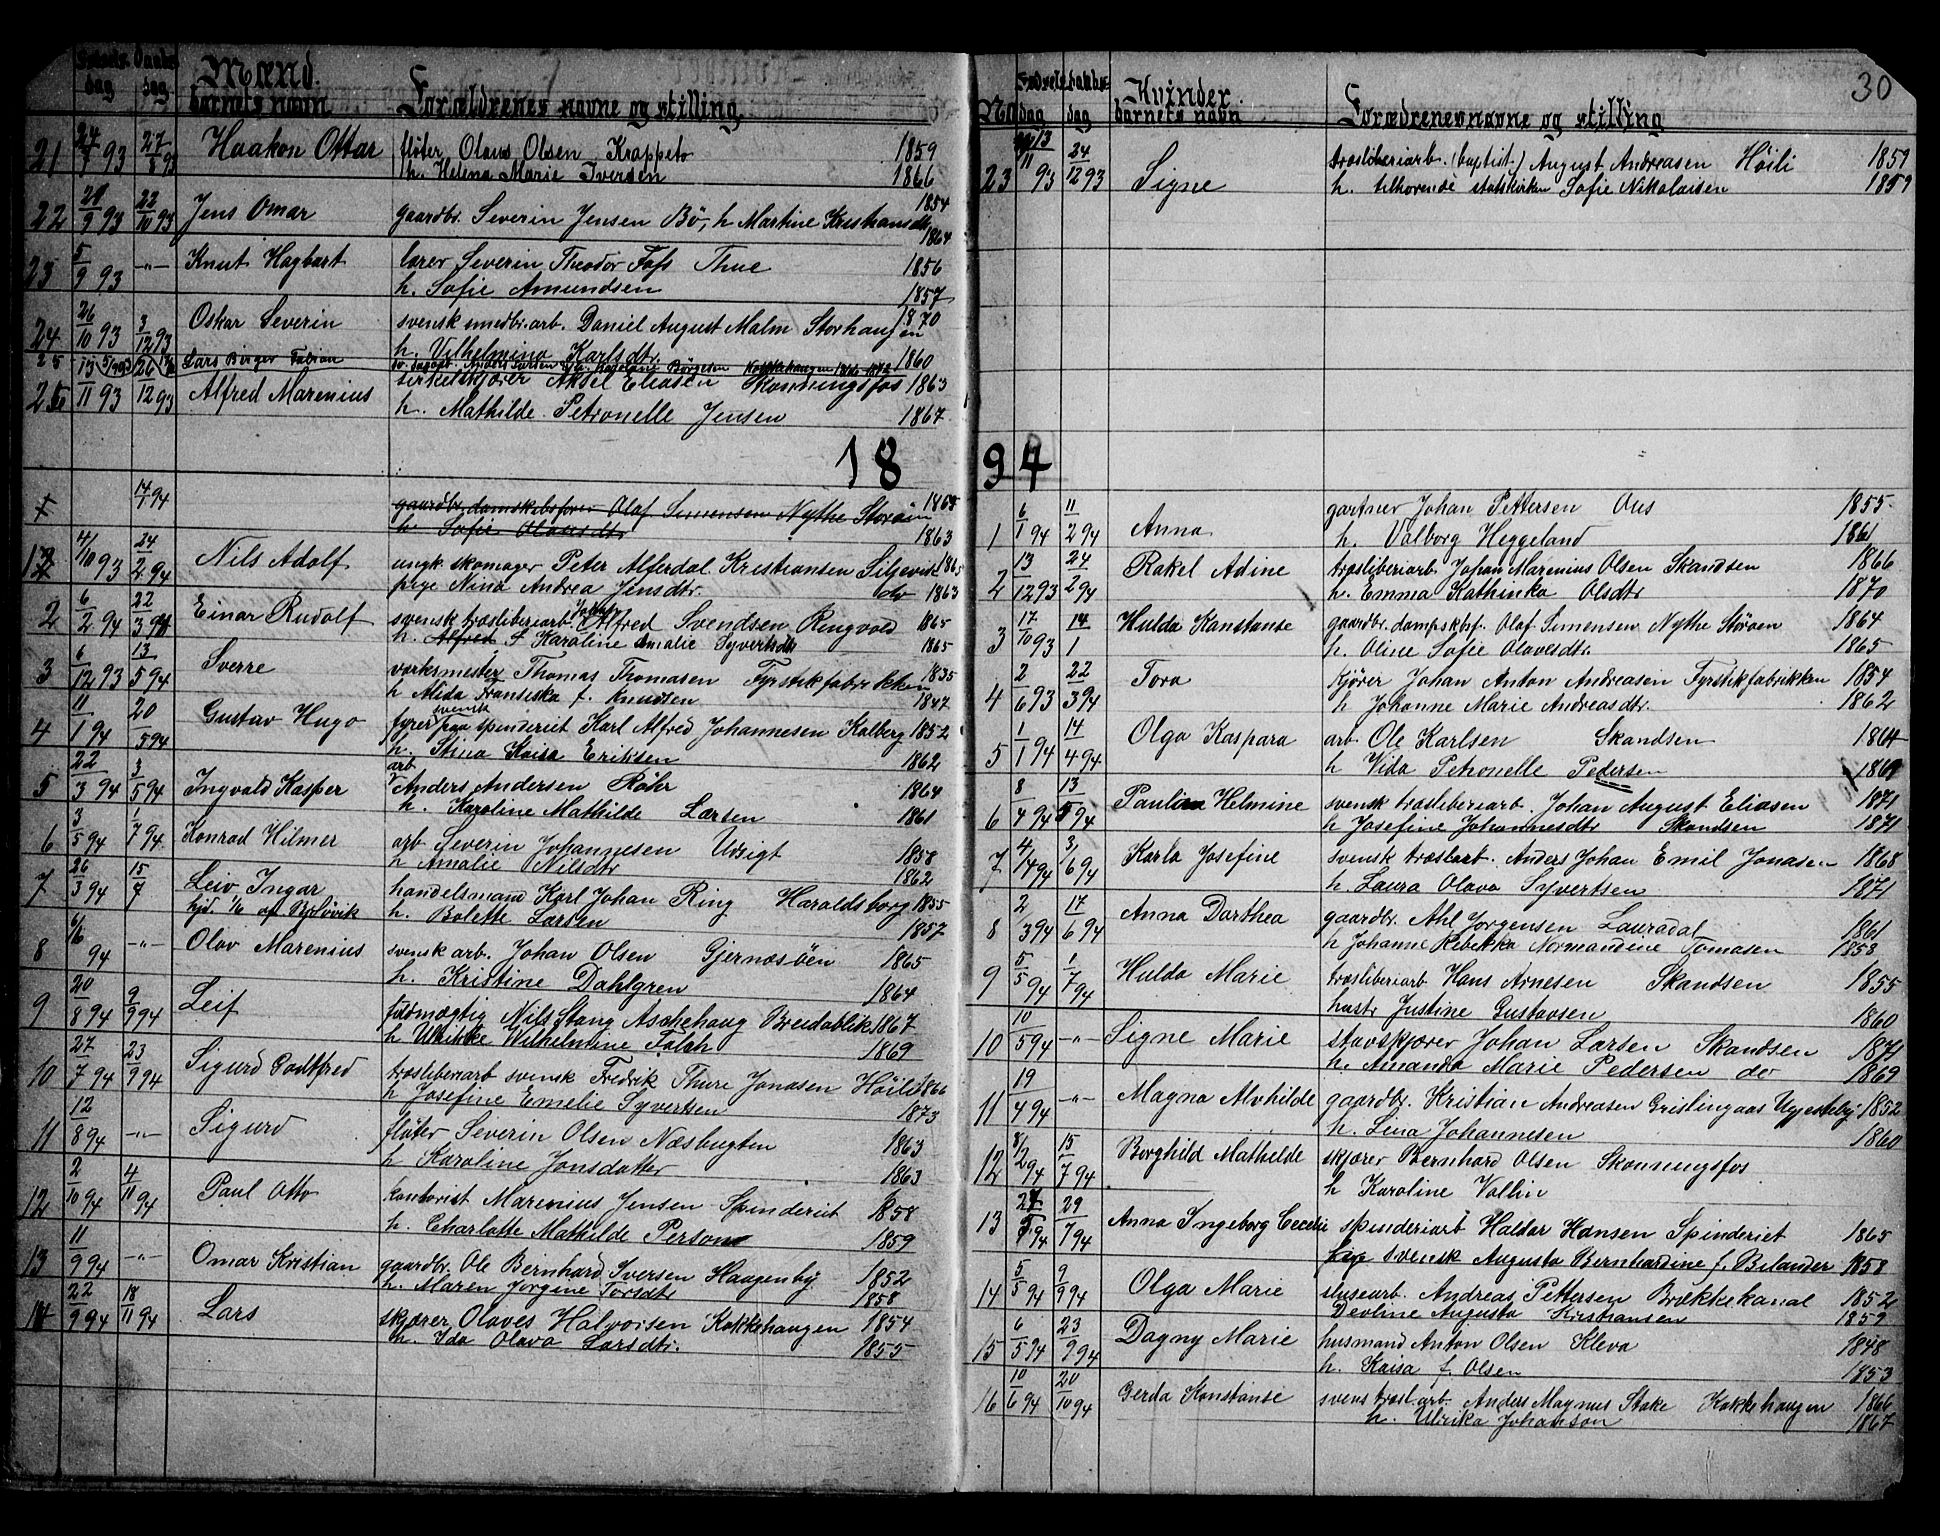 Fødsels dag
Daabs dag
Mænd.
barnets navn
Forældrenes navne og stilling
21 24/7 93 27/8 93 Haakon Ottar fløter Olaus Olsen Krappeto 1859
h. Helena Marie Iversen 1866
22 21/9 93 22/10 93 Jens Omar gaardbr. Severin Jensen Bö, h Martine Kristiansdtr 1854
1864
23 5/9 93 -"- Knut Hagbart lærer Severin Theodor Foss Thue 1856
h. Sofie Amundsen 1857
24 26/10 93 3/12 93 Oskar Severin svensk smedbr.arb. Daniel August Malm Storhaugen 1870
h. Vilhelmina Karlsdtr. 1860
25 Lars Birger Fabian
26 13/11 93 26/12 93 Alfred Marenius sirkelskjærer Aksel Eliasen Skonningsfos 1863
h. Mathilde Petronelle Jensen 1867
18
+ 14/1 94 gaardbr. damskibsfører Olaf Simensen Nythe Storöen 1865
h. Sofie Olavesdtr 1863
1 4/10 93 24/2 94 Nils Adolf ungk. skomager Peter Alferdal Kristiansen Siljevik 1865
pige Nina Andrea Jensdtr. do 1863
2 6/2 94 22/3 94 Einar Rudolf svensk træsliberiarb. Alfred Svendsen Ringvold 1865
h. Alfred S Karoline Amalie Syvertsdtr 1865
3 6/12 93 13/5 94 Sverre værksmester Thomas Thomasen Fyrstikfabrikken 1835
h Alida Fransiska f. Knudsen 1847
4 11/1 94 20/5 94 Gustav Hugo svensk fyrer paa spinderiet Karl Alfred Johannesen Kalberg 1852
h. Stina Kaisa Eriksen 1862
5 22/3 94 3/5 94 Ingvald Kasper arb Anders Andersen Röhr 1864
h. Karoline Mathilde Larsen 1861
6 3/5 94 1/7 94 Konrad Hilmer arb Severin Johannesen Udsigt 1858
h Amalie Nilsdtr 1862
7 26/3 94 15/7 Leiv Ingar handelsmand Karl Johan Ring Haraldsborg 1855
hjd. 1/6 af Björvik h. Bolette Larsen 1857
8 6/6 94 -"- Olav Marenius svensk arb. Johan Olsen Gjernæsöen 1865
h. Kristine Dahlgren 1864
9 20/8 94 9/9 94 Leif fuldmægtig Nils Stang Aschehaug Breidablik 1867
h Ulrikke Wilhelmine Falch 1869
10 27/7 94 23/9 94 Sigurd Godtfred træsliberiarb svensk Fredrik Thure Jonasen Höili 1866
h Josefine Emelie Syvertsen 1873
11 12/8 94 -"- Sigurd fløter Severin Olsen Næsbugten 1863
h Karoline Jonsdatter 1863
12 2/10 94 4/11 94 Paul Otto kontorist Marenius Jensen Spinderiet 1858
h. Charlotte Mathilde Person 1859
13 11/9 94 -"- Omar Kristian gaardbr. Ole Bernhard Iversen Haagenby 1852
h. Maren Jørgine Torsdtr 1858
14 22/9 94 18/11 94 Lars skjærer Olaves Halvorsen Kokkehaugen 1854
h. Ida Olava Larsdtr. 1855
30
No
Fødsels dag
daabs dag
Kvinder.
barnets navn
Forældrenes navne og stilling
23 13/11 93 24/12 93 Signe træsliberiarb. (baptist) August Andreasen Höili 1859
h. tilhørende statskirken Sofie Nikolaisen 1859
94
1 6/1 94 11/2 94 Anna gartner Johan Pettersen Ous 1855
h. Valborg Heggeland 1861
2 13/12 93 24/2 94 Rakel Adine træsliberiarb. Johan Marenius Olsen Skandsen 1866
h. Emma Kathinka Olsdtr 1870
3 17/10 93 14/1 Hulda Konstanse gaardbr. dampskbsf. Olaf Simensen Nythe Störöen 1864
h. Oline Sofie Olavesdtr. 1865
4 2/6 93 22/3 94 Tora kjører Johan Anton Andreasen Fyrstikfabrikken 1854
h Johanne Marie Andreasdtr. 1862
5 1/1 94 14/4 94 Olga Kaspara arb. Ole Karlsen Skandsen 1864
h Vida Petronelle Pedersen 1869
6 8/4 94 13/5 94 Pauline Helmine svensk træsliberiarb. Johan August Eliasen 1871
h Josefine Johannesdtr Skandsen 1871
7 4/4 94 3/6 94 Karla Josefine svensk træslarb. Anders Johan Emil Jonasen 1868
h. Laura Olava Syvertsen 1871
8 2/3 94 17/6 94 Anna Dorthea gaardbr. Ahl Jorgensen Lauradal 1861
h Johanne Rebekka Normandine Tomasen 1853
9 5/5 94 1/7 94 Hulda Marie træsliberiarb Hans Arnesen Skandsen 1855
hustr Justine Gustavsen 1860
10 10/5 94 -"- Signe Marie stavskjærer Johan Larsen Skandsen 1871
h. Amanda Marie Pedersen do 1869
11 19/4 94 -"- Magna Alvhilde gaardbr. Kristian Andreasen Grislingaas 1852
h. Lina Johannesen 1860
12 8/2 94 15/7 94 Borghild Mathilde skjærer Bernhard Olsen Skonningsfos
h Karoline Vallin
13 94 29/7 94 Anna Ingeborg Cecelie spinderiarb Haldor Hansen Spinderiet 1865
svensk Augusta Bernhardine f. Belander 1858
14 5/5 94 9/9 94 Olga Marie slusearb. Andreas Pettersen Brækkekanal 1852
Devline Augusta Kristiansen 1859
15 6/5 94 23/9 94 Dagny Marie husmand Anton Olsen Kleva 1848
h. Kaisa f. Olsen 1853
16 10/6 94 20/10 94 Gerda Konstanse svensk træsl.arb. Anders Magnus Stake Kokkehaugen 1866
h. Ulrika Johanson 1867